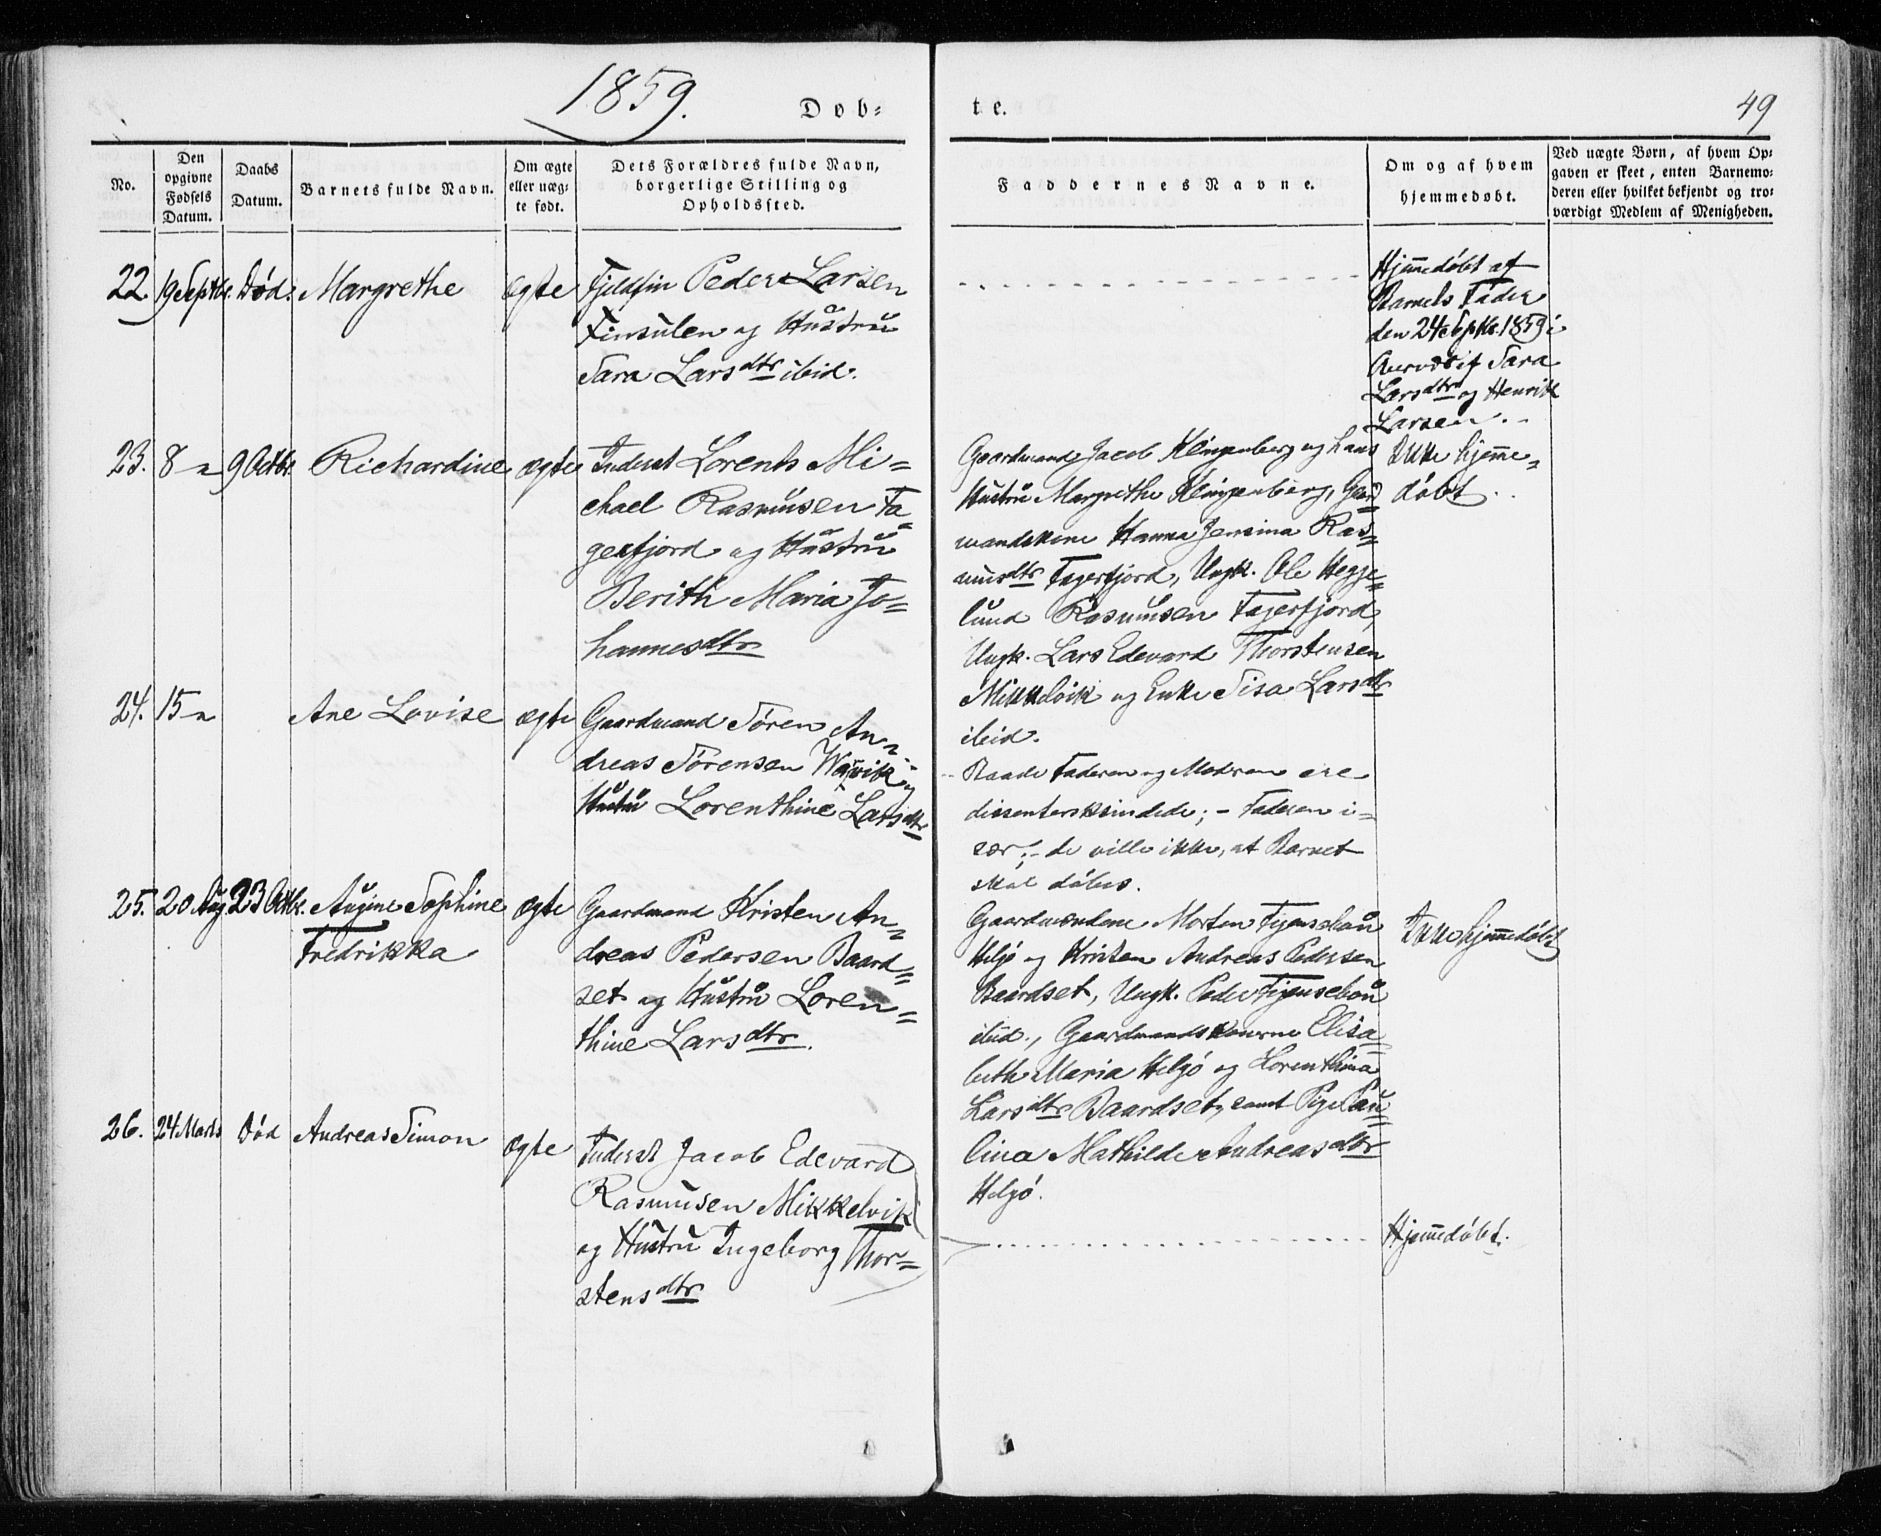 1859.
Døb-
te.
49
No.
Den
opgivne
Fødsels
Datum.
Daabs
Datum.
Barnets fulde Navn.
Om ægte
eller uæg-
te født.
Dets Forældres fulde Navn,
borgerlige Stilling og
Opholdssted.
Faddernes Navne.
Om og af hvem
hjemmedøbt.
Ved uægte Børn, af hvem Op-
gaven er skeet, enten Barnemo-
deren eller hvilket bekjendt og tro-
værdigt Medlem af Menigheden.
22. 19 Septbr. Død. Margrethe ægte
Fjeldfin Peder Larsen
Finsulen og Hustru
Sara Larsdtr ibid.
Hjemmedøbt af
Barnets Fader
den 24 Sptbr. 1859 i
Sara
Larsdtr og Henrik
Larsen.
23. 8 - 9 Octbr. Richardine ægte
Inderst Lorents Mi-
chael Rasmusen Fa-
gerfjord og Hustru
Berith Maria Jo-
hannesdtr
Gaardmand Jacob Klingenberg og hans
Hustru Margrethe Klingenberg, Gaard-
mandskone Hanna Jensina Ras-
musdtr Fagerfjord, Ungk. Ole Hegge-
lund Rasmusen Fagerfjord,
Ungk. Lars Edevard Thorstensen
Mikkelvik og Enke Sisa Larsdtr
ibid.
Ikke hjemme-
døbt.
24. 15 - Ane Lovise ægte
Gaardmand Søren An-
dreas Sørensen
Hustru Lorenthine Larsdtr
Baade Faderen og Moderen ere
dissentersksindede; - Faderen i-
sær; - de ville ikke, at Barnet
skal døbes.
25. 20 Aug 23 Octbr. Augine Sophine ægte
Fredrikka
Gaardmand Kristen An-
dreas Pedersen Baard-
set og Hustru Loren-
thine Larsdtr.
Gaardmændene Morten
Helgø og Kristen Andreas Pedersen
Baardset, Ungk. Peder
ibid., Gaardmandskonerne Elisa-
beth Maria Helgø og Lorenthina
Larsdtr Baardset, samt Pige Pau-
lina Mathilde Andreasdtr
Helgø.
Ikke hjemmedøbt
26. 24 Marts Død Andreas Simon ægte
Inderst Jacob Edevard
Rasmusen Mikkelvik
og Hustru Ingeborg Thor-
stensdtr
Hjemmedøbt.